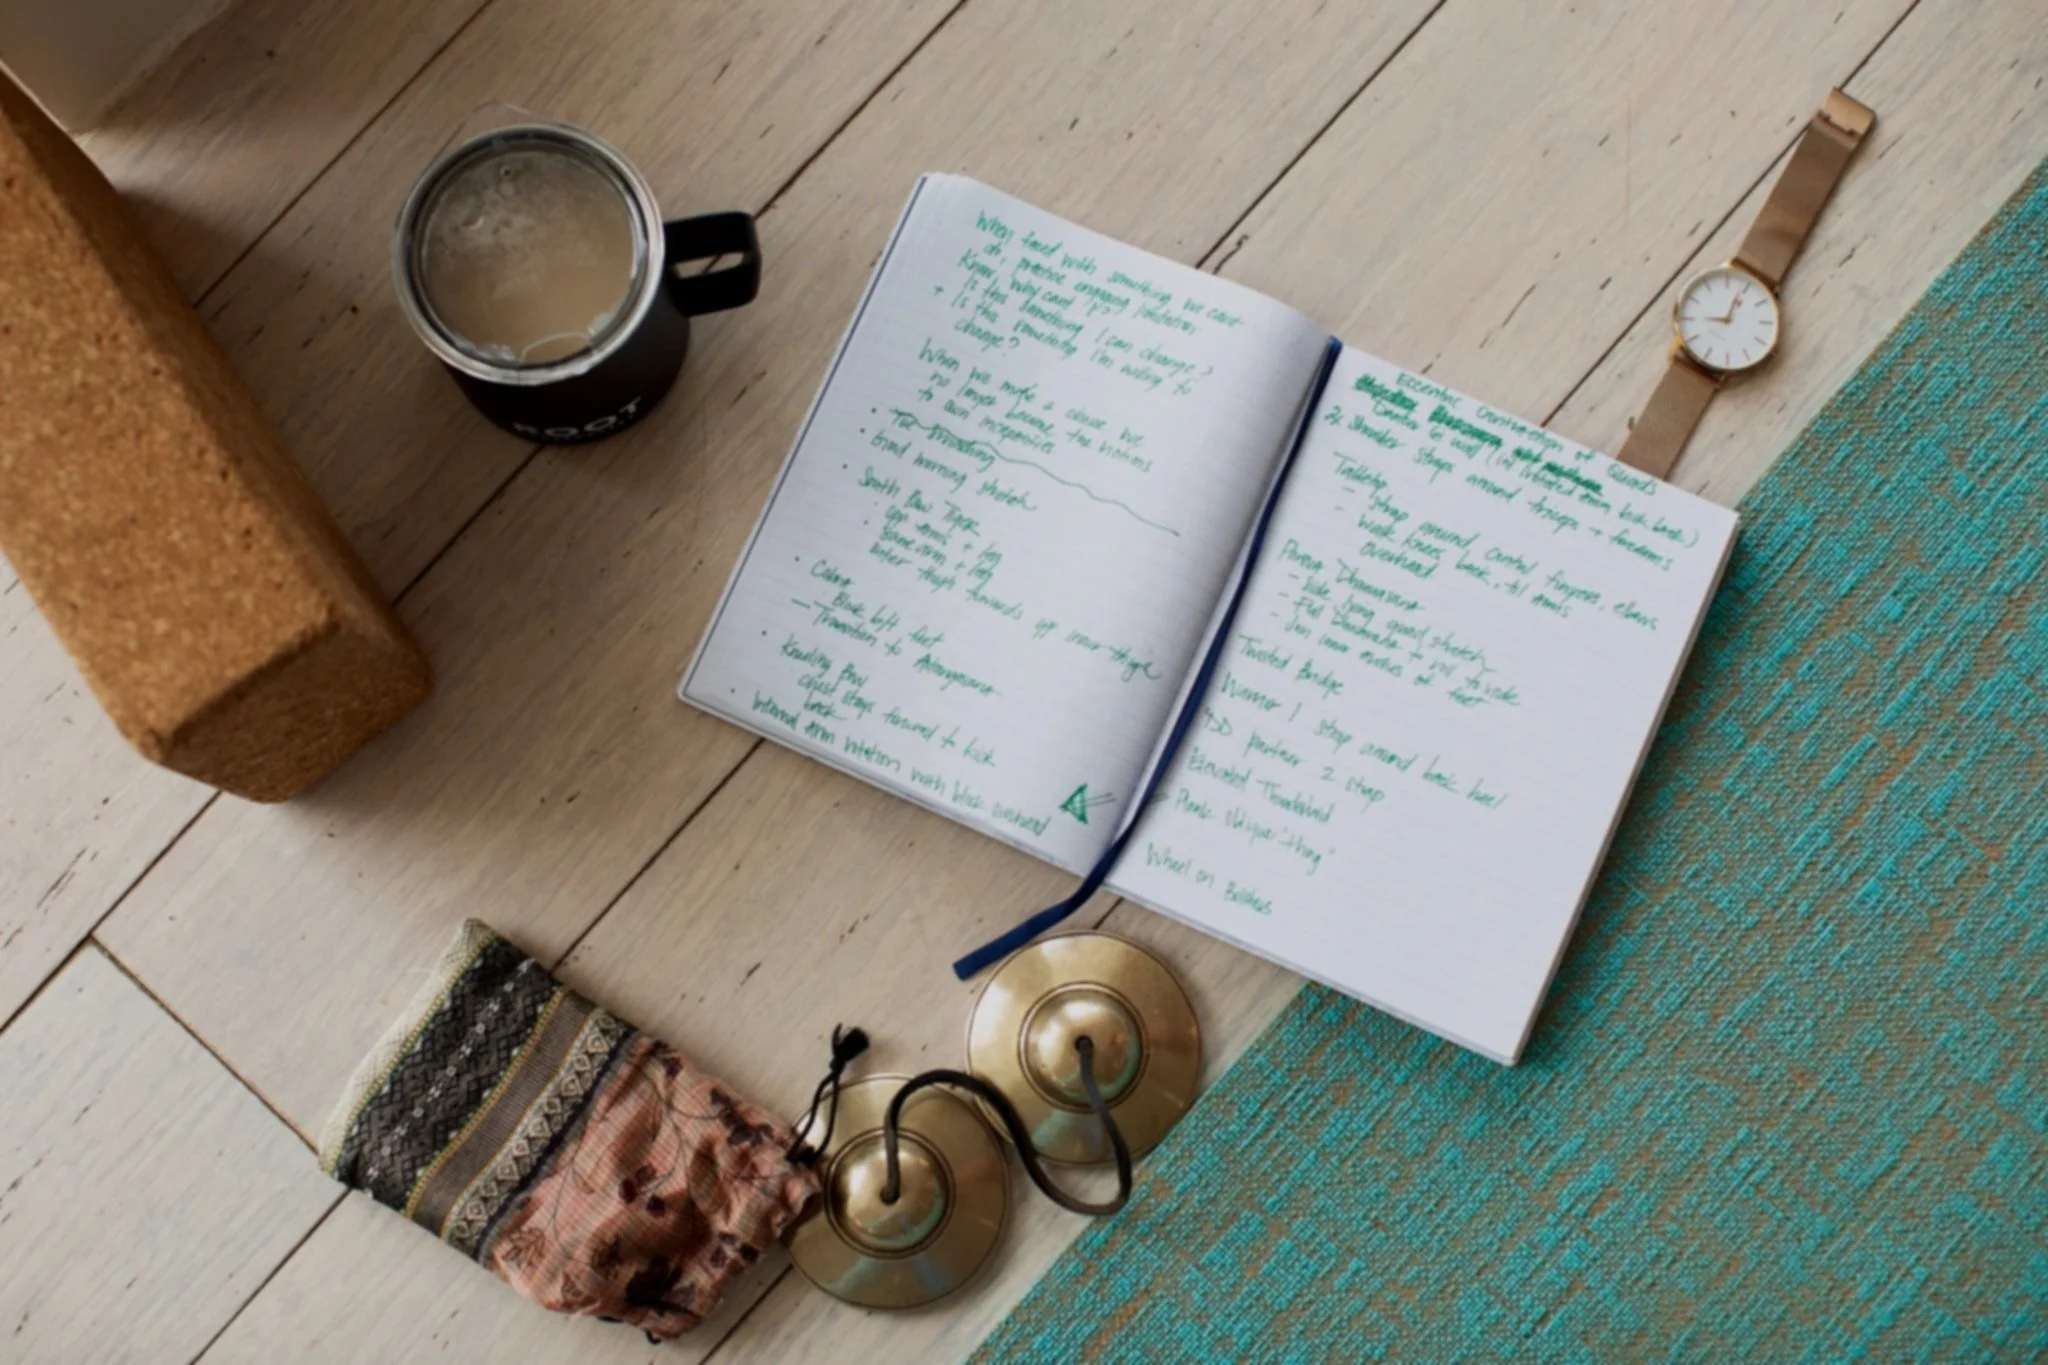 ROOT
When faced with something we can't
do, practice engaging limitation
Know why can't I?
Is this something I can change?
+ Is this something I'm willing to
change?
When we make a choice we
no longer become the victims
to own incapacities
• The
• Good morning stretch
• South Paw Tiger
opp arms + leg
• same arm + leg
inner thigh towards opp inner thigh
• Cobra
Block b/t feet
— Transition to
• Kneeling Bow
chest stays forward to kick
back
• Internal arm rotation with block overhead
Eccentric Contraction of Quads
Dancer @ wall (w/ kick back)
2x Shoulder straps around triceps → forearms
Tabletop
- Strap around
- Walk knees back, til arms
overhead
Dhanurasana
- Side lying quad stretch
- Full to roll to side
- Join inner ankles of feet
Twisted Bridge
Warrior 1 strap around back heel
DD partner 2 strap
Elevated Thunderbolt
Plank oblique "thing"
Wheel on Bolsters